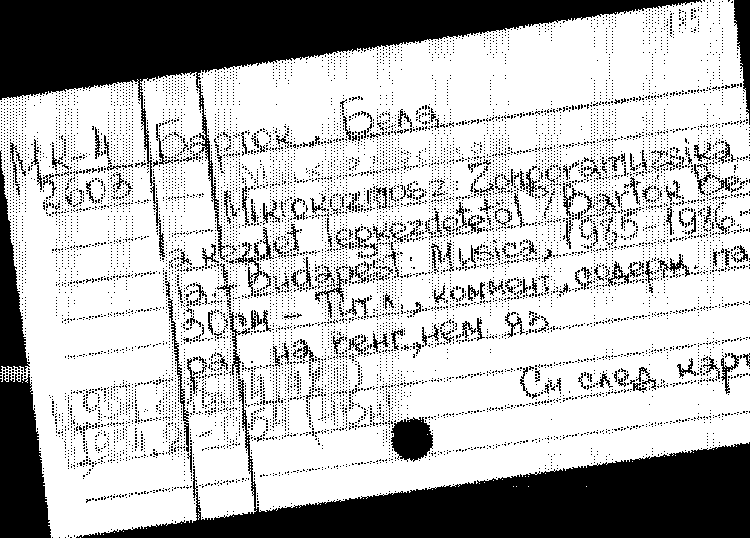 195
МК-4 Барток, Бела
2603
Mikrokozmosz: Zongoramuzsika
a kezdet legkezdetétöl / Bartók Bé-
la. - Budapest: Musica, 1985-1986-
30см - Тит.л., коммент., содерж. па
рал. на венг., нем яз
См след. карт